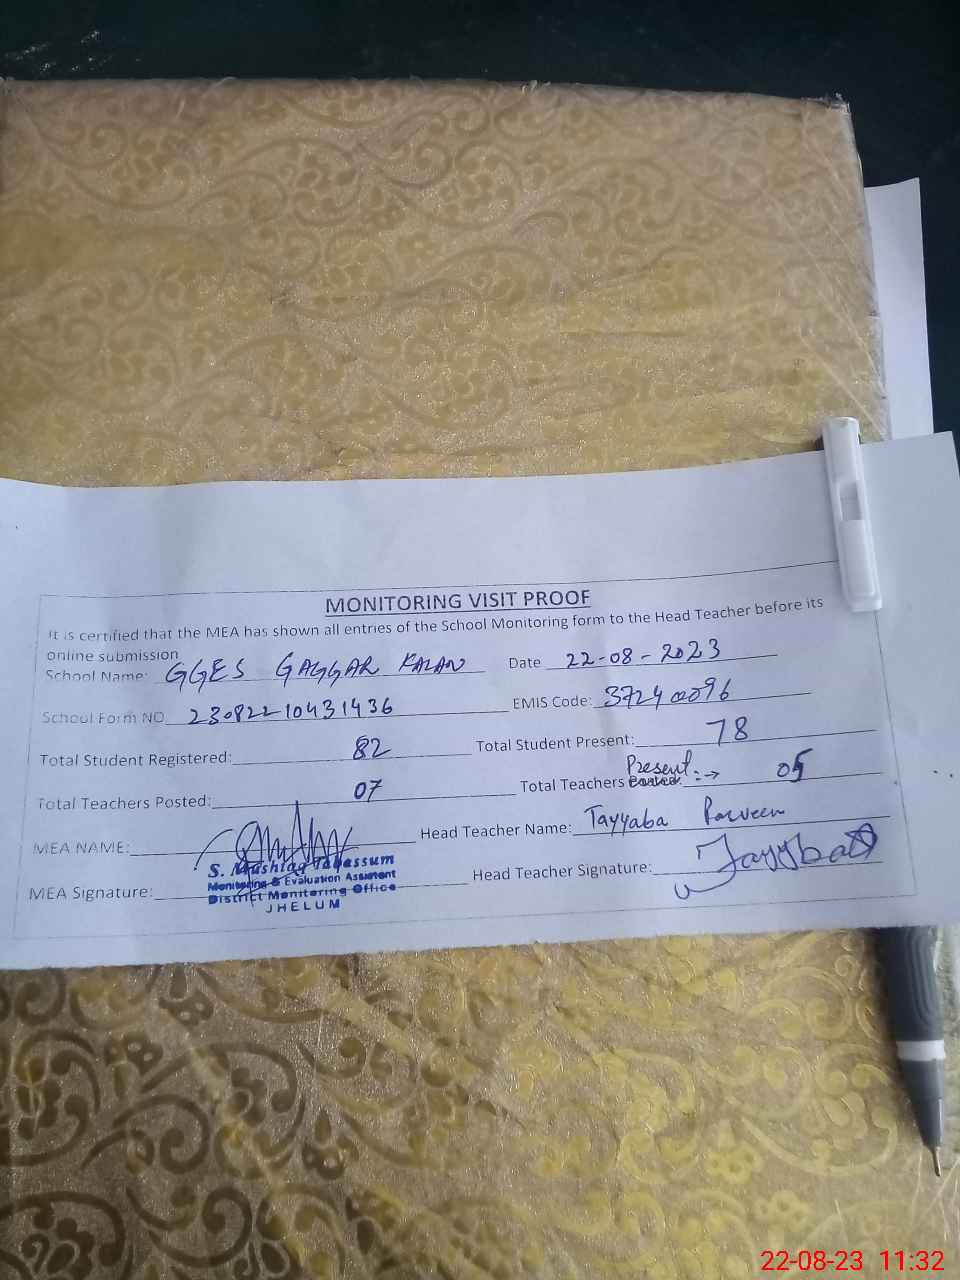 MONITORING VISIT PROOF
It is certified that the MEA has shown all entries of the School Monitoring form to the Head Teacher before its
online submission
School Name: GGES GAGGAR KALAN Date 22-08-2023
School Form NO 230822-10431436 EMIS Code: 37240096
Total Student Registered: 82 Total Student Present: 78
Total Teachers Posted: 07 Total Teachers Present :-> 05
MEA NAME: Head Teacher Name: Tayyaba Parveen
S. Mushtaq Tabassum
Monitoring & Evaluation Assistent
District Monitoring Office
JHELUM
MEA Signature: Head Teacher Signature: Tayyba
22-08-23 11:32